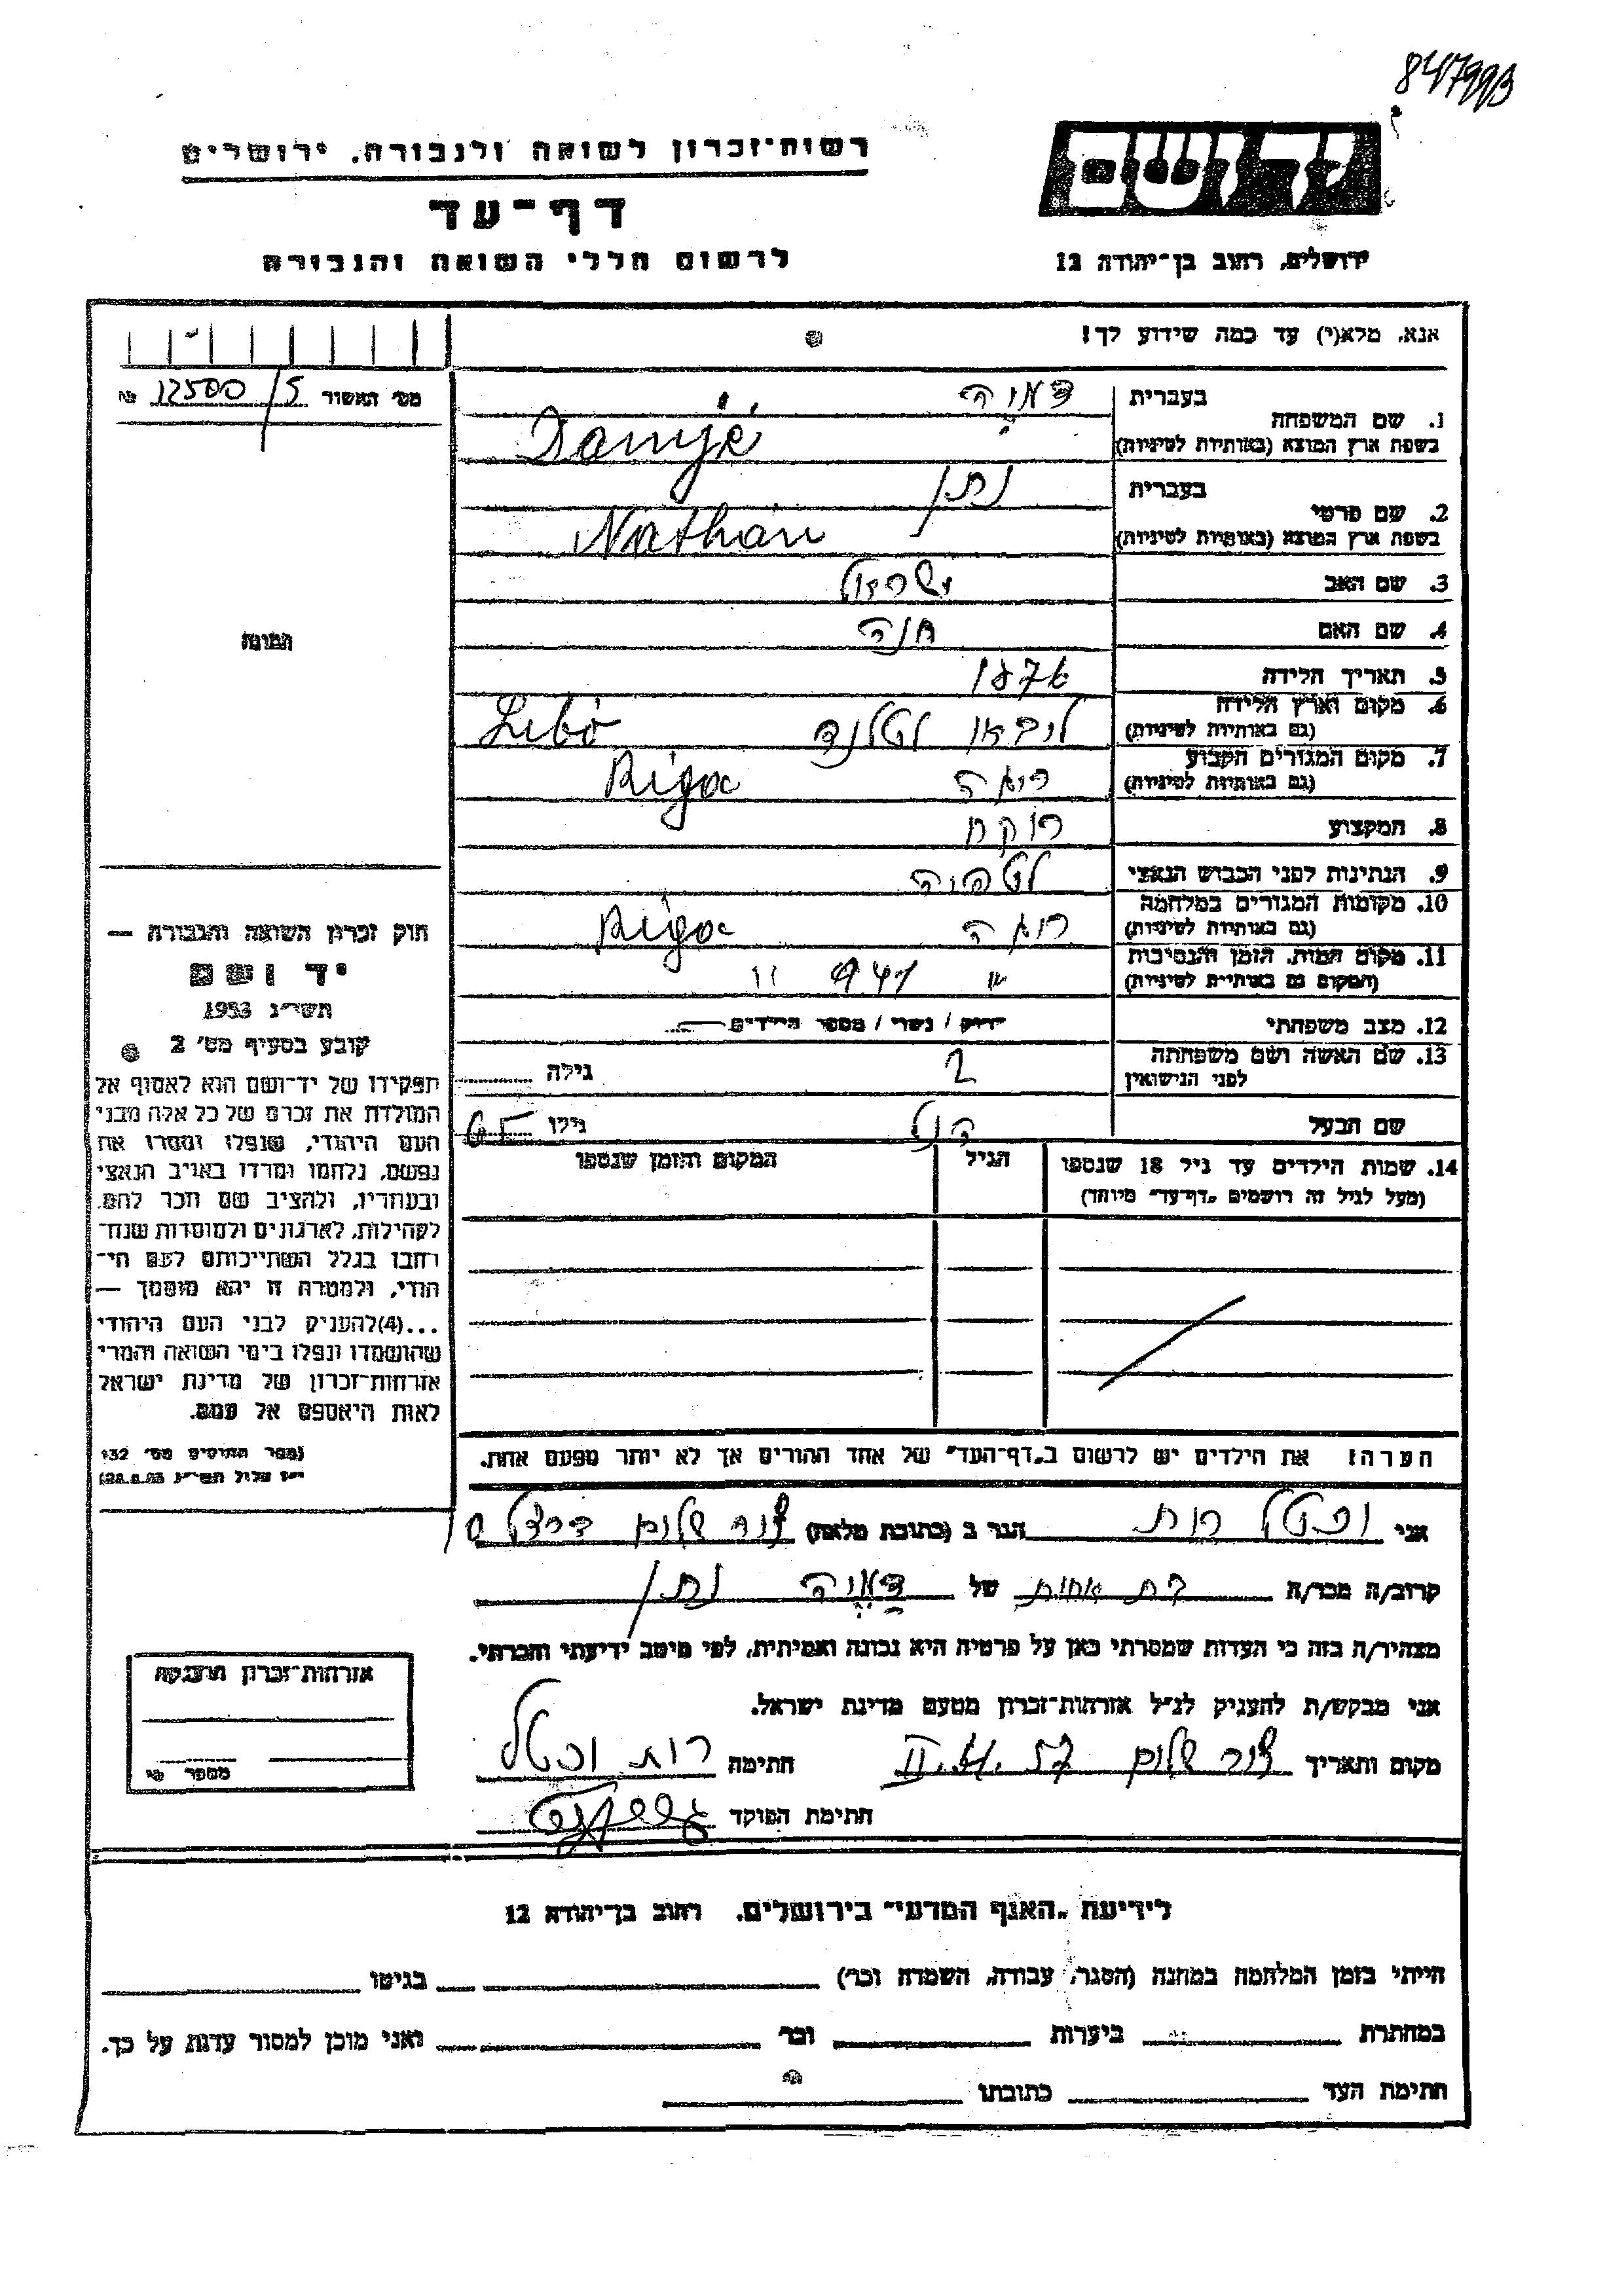 רשות-זכרון לשואה ולגבורה, ירושלים
דף-עד
לרשום חללי השואה והגבורה
יד ושם
ירושלים, רחוב בן-יהודה 12
אנא, מלא(י) עד כמה שידוע לך!
מס' האשור 12500/5 №
בעברית
1. שם המשפחה
בשפת ארץ המוצא (באותיות לטיניות)
בעברית נתן
2. שם פרטי
בשפת ארץ המוצא (באותיות לטיניות) Nathan
3. שם האב ישראל
4. שם האם חנה
5. תאריך הלידה 1876
6. מקום וארץ הלידה ליבאו לטלנד
(גם באותיות לטיניות)
7. מקום המגורים הקבוע ריגה Riga
(גם באותיות לטיניות)
8. המקצוע רוקח
9. הנתינות לפני הכבוש הנאצי לטביה
10. מקומות המגורים במלחמה ריגה Riga
(גם באותיות לטיניות)
11. מקום המות, הזמן והנסיבות " 941 "
(המקום גם באותיות לטיניות)
12. מצב משפחתי רווק / נשוי / מספר הילדים
13. שם האשה ושם משפחתה
לפני הנישואין גילה
שם הבעל גילו 65
14. שמות הילדים עד גיל 18 שנספו הגיל המקום והזמן שנספו
(מעל לגיל זה רושמים "דף-עד" מיוחד)
הערה! את הילדים יש לרשום ב"דף-העד" של אחד ההורים אך לא יותר מפעם אחת.
התמונה
חוק זכרון השואה והגבורה —
יד ושם
תשי"ג 1953
קובע בסעיף מס' 2
תפקידו של יד-ושם הוא לאסוף אל
המולדת את זכרם של כל אלה מבני
העם היהודי, שנפלו ומסרו את
נפשם, נלחמו ומרדו באויב הנאצי
ובעוזריו, ולהציב שם וזכר להם,
לקהילות, לארגונים ולמוסדות שנח-
רבו בגלל השתייכותם לעם הי-
הודי, ולמטרה זו יהא מוסמך —
...(4) להעניק לבני העם היהודי
שהושמדו ונפלו בימי השואה והמרי
אזרחות-זכרון של מדינת ישראל
לאות היאספם אל עמם.
(ספר החוקים מס' 132
י"ז אלול תשי"ג 28.8.53)
אני רות הגר ב (כתובת מלאה) צור שלום
קרוב/ה מכר/ה בת אחות של נתן
מצהיר/ה בזה כי העדות שמסרתי כאן על פרטיה היא נכונה ואמיתית, לפי מיטב ידיעתי והכרתי.
אני מבקש/ת להעניק לנ"ל אזרחות-זכרון מטעם מדינת ישראל.
מקום ותאריך צור שלום חתימה רות
חתימת הפוקד
אזרחות-זכרון הוענקה
מספר №
לידיעת "האגף המדעי" בירושלים, רחוב בן-יהודה 12
הייתי בזמן המלחמה במחנה (הסגר, עבודה, השמדה וכו') בגיטו
במחתרת ביערות וכו' ואני מוכן למסור עדות על כך.
חתימת העד כתובתו